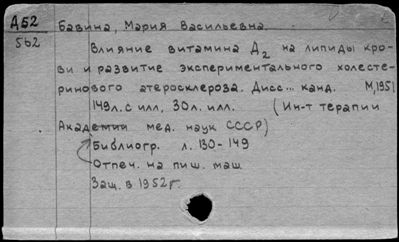 Д52
562
Бавина, Мария Васильевна.
Влияние витамина Д2 на липиды кро-
ви и развитие экспериментального холесте-
ринового атеросклероза. Дисс... канд. М, 1951
149л. с илл, 30л. илл. (Ин-т терапии
Академии мед. наук СССР)
Библиогр. л. 130-149
Отпеч. на пиш. маш.
Защ. в 1952г.